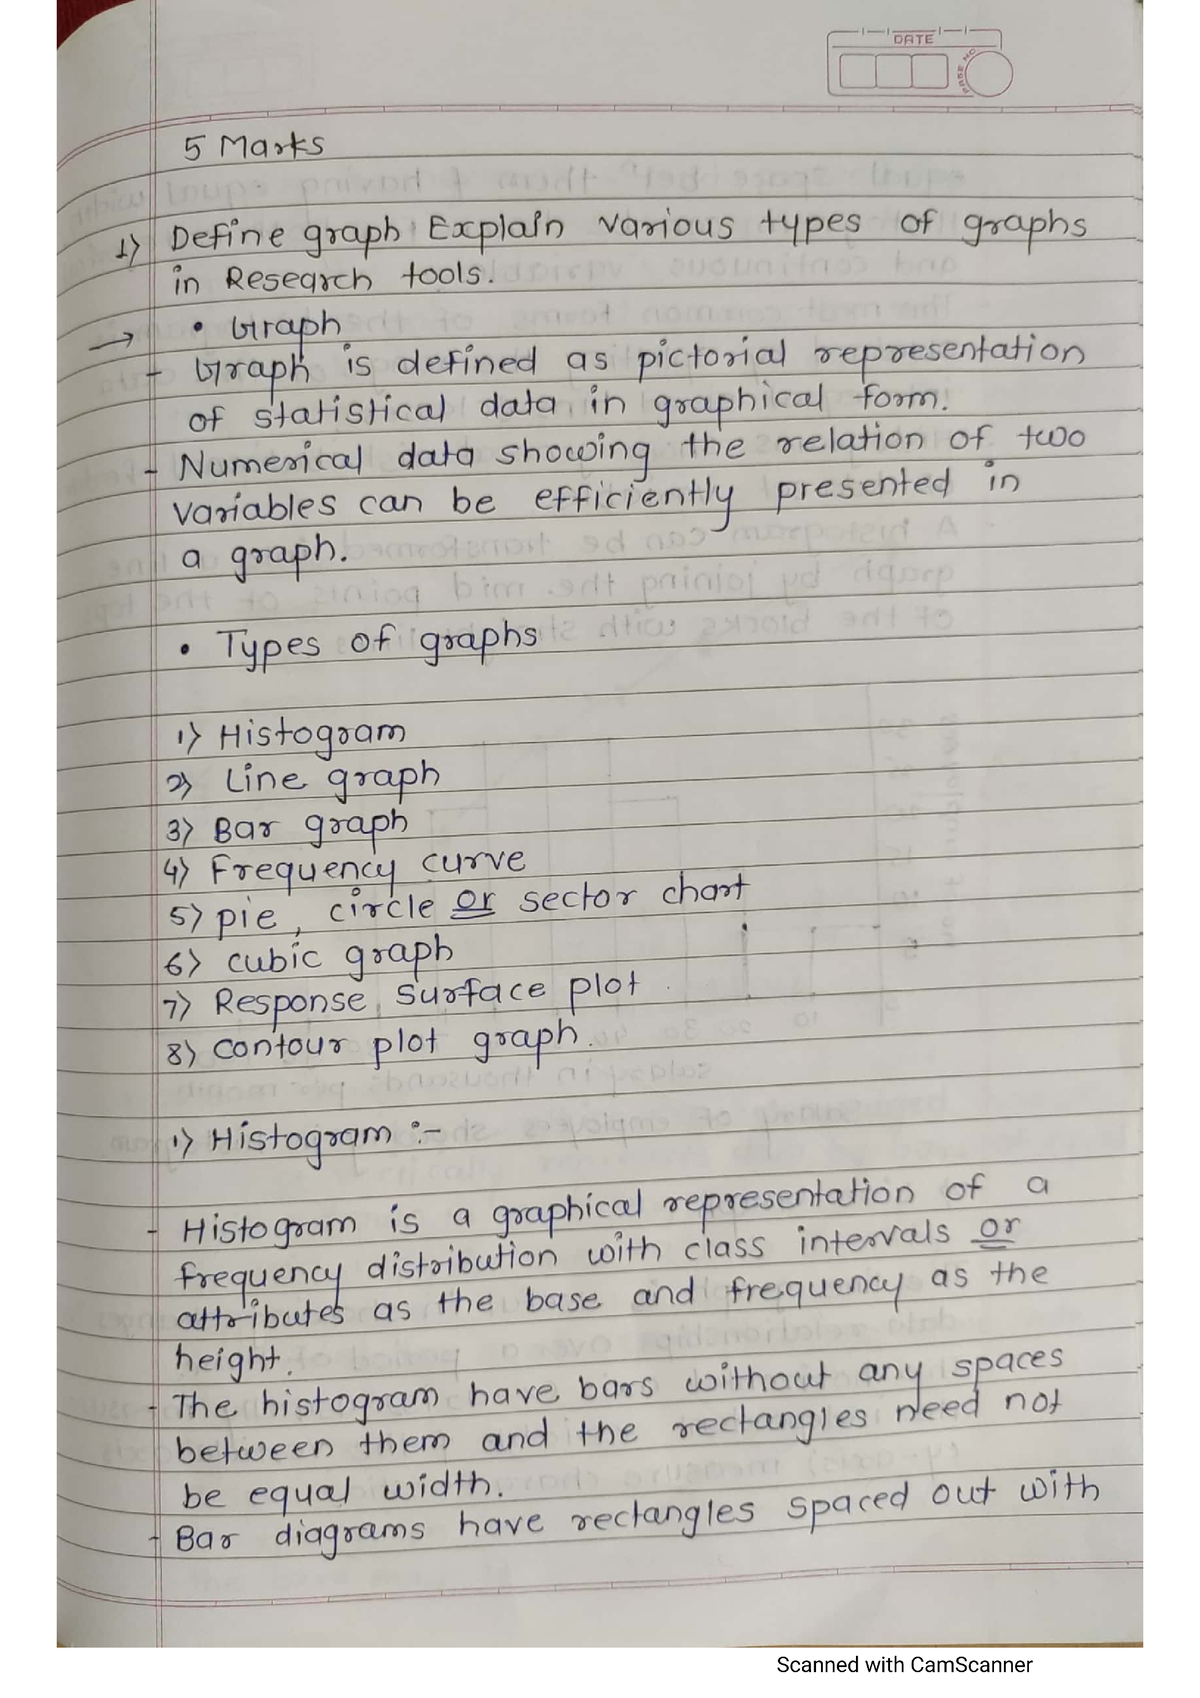 DATE
PAGE NO
5 Marks
1) Define graph. Explain various types of graphs
in Research tools.
→ • Graph
- Graph is defined as pictorial representation
of statistical data in graphical form.
- Numerical data showing the relation of two
variables can be efficiently presented in
a graph.
• Types of graphs
1) Histogram
2) Line graph
3) Bar graph
4) Frequency curve
5) pie, circle or sector chart
6) cubic graph
7) Response surface plot
8) contour plot graph.
1) Histogram :-
- Histogram is a graphical representation of a
frequency distribution with class intervals or
attributes as the base and frequency as the
height.
- The histogram have bars without any spaces
between them and the rectangles need not
be equal width.
- Bar diagrams have rectangles spaced out with
Scanned with CamScanner